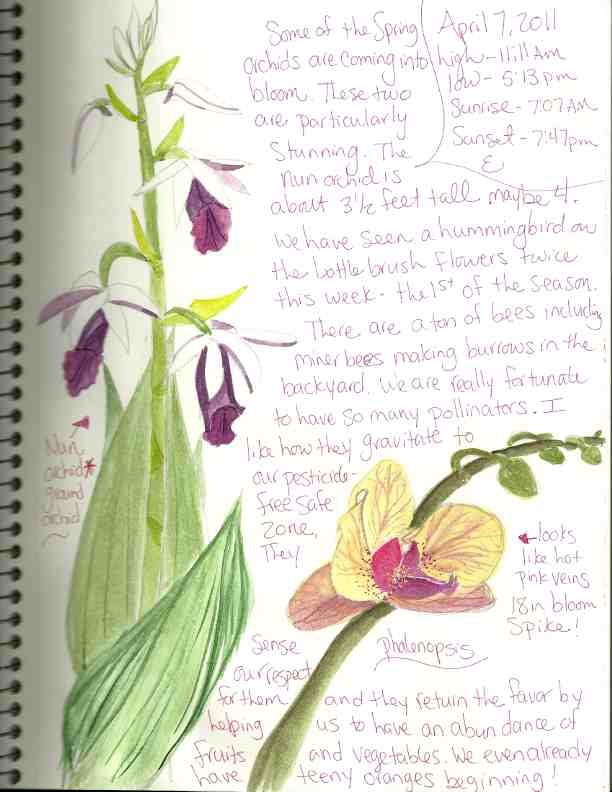 Some of the Spring
orchids are coming into
bloom. These two
are particularly
Stunning. The
nun orchid is
about 3½ feet tall maybe 4.
We have seen a hummingbird on
the bottle brush flowers twice
this week - the 1st of the season.
There are a ton of bees including
miner bees making burrows in the
backyard. We are really fortunate
to have so many pollinators. I
like how they gravitate to
our pesticide-
free safe
zone,
They
Sense
our respect
for them and they return the favor by
helping us to have an abundance of
fruits and vegetables. We even already
have teeny oranges beginning!
April 7, 2011
high - 11:11 Am
low - 5:13 pm
Sunrise - 7:07 AM
Sunset - 7:47pm
Nun
orchid*
ground
orchid
looks
like hot
pink veins
18 in bloom
Spike!
phalenopsis